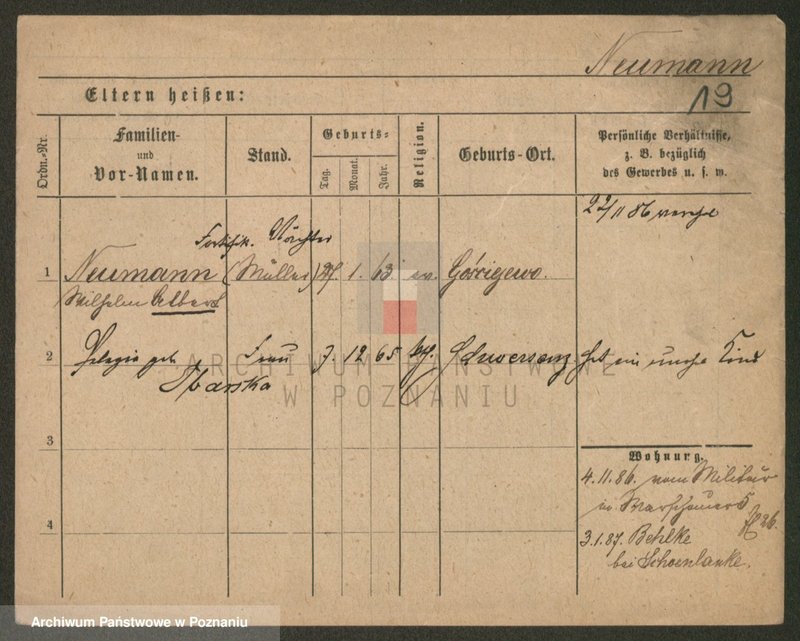 Neumann
19
Eltern heißen:
Ordn.-Nr.
Familien-
und
Vor-Namen.
Stand.
Geburts-
Tag.
Monat.
Jahr.
Religion.
Geburts-Ort.
Persönliche Verhältnisse,
z. B. bezüglich
des Gewerbes u. s. w.
22/11 86
Fortifik. Wächter
1 Neumann (Müller) 1. 63 ev.
Wilhelm Albert
2 Pelagia geb. Frau 3. 12 65 Schwersenz hat ein Kind
3
Wohnung.
4.11.86. vom Militär
in
4
3.1.87. Behlke
bei Schoenlanke.
ARCHIWUM PAŃSTWOWE
W POZNANIU
Archiwum Państwowe w Poznaniu